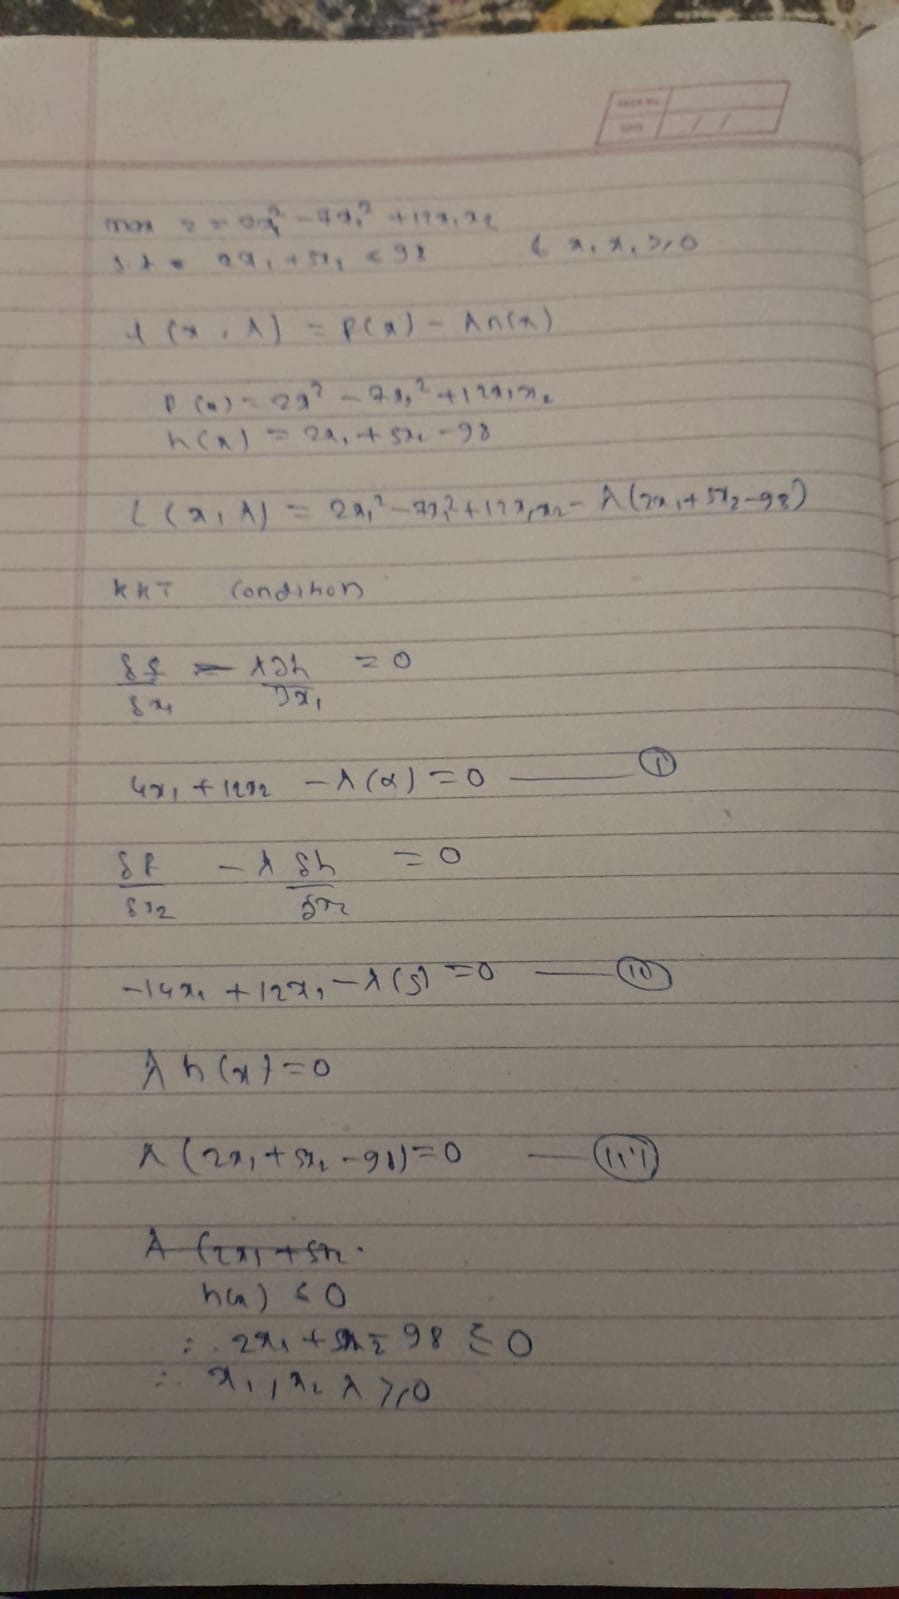 PAGE NO.
DATE / /
max z = 2x₁² - 7x₂² + 12x₁x₂
s.t = 2x₁ + 5x₂ ≤ 98 & x₁ x₂ ≥ 0
L (x, λ) = f(x) - λh(x)
f(x) = 2x² - 7x₂² + 12x₁x₂
h(x) = 2x₁ + 5x₂ - 98
L (x, λ) = 2x₁² - 7x₂² + 12x₁x₂ - λ(2x₁ + 5x₂ - 98)
KKT condition
δf/δx₁ - λ∂h/∂x₁ = 0
4x₁ + 12x₂ - λ(2) = 0 — (i)
δf/δx₂ - λ δh/δx₂ = 0
-14x₂ + 12x₁ - λ(5) = 0 — (ii)
λ h(x) = 0
λ (2x₁ + 5x₂ - 98) = 0 — (iii)
λ (2x₁ + 5x₂
h(x) ≤ 0
∴ 2x₁ + 5x₂ - 98 ≤ 0
∴ x₁, x₂ λ ≥ 0